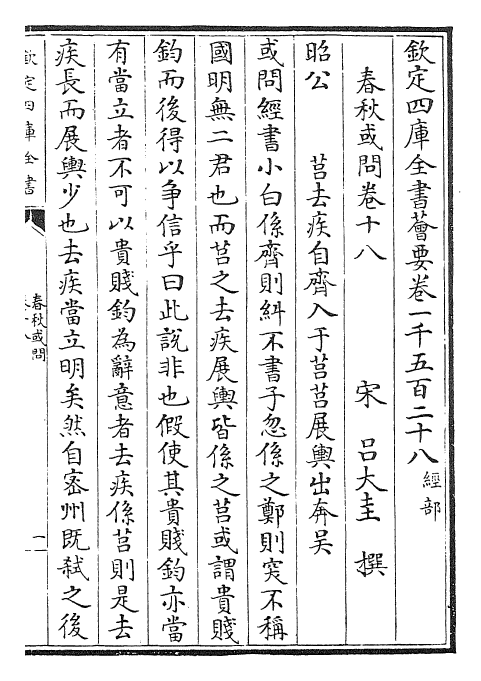 欽定四庫全書薈要卷一千五百二十八 經部
春秋或問卷十八
宋 呂大圭 撰
昭公
莒去疾自齊入于莒莒展輿出奔吳
或問經書小白係齊則糾不書子忽係之鄭則突不稱
國明無二君也而莒之去疾展輿皆係之莒或謂貴賤
鈞而後得以爭信乎曰此說非也假使其貴賤鈞亦當
有當立者不可以貴賤鈞為辭意者去疾係莒則是去
疾長而展輿少也去疾當立明矣然自密州既弒之後
欽定四庫全書
春秋或問
卷十八
一